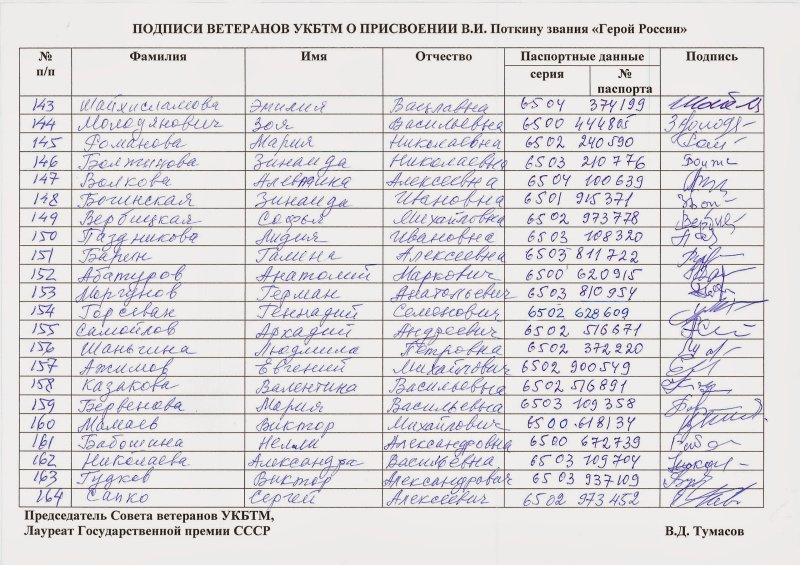 ПОДПИСИ ВЕТЕРАНОВ УКБТМ О ПРИСВОЕНИИ В.И. Поткину звания «Герой России»
№ п/п Фамилия Имя Отчество Паспортные данные Подпись
серия № паспорта
143 Шайхисламова Эмилия Вацлавна 6504 374199
144 Молодянович Зоя Васильевна 6500 444805
145 Фоманова Мария Николаевна 6502 240590
146 Болтикова Зинаида Николаевна 6503 210776
147 Волкова Алевтина Алексеевна 6504 100639
148 Богинская Зинаида Ивановна 6501 915371
149 Вербицкая Софья Михайловна 6502 973778
150 Паздникова Лидия Ивановна 6503 108320
151 Галина Алексеевна 6503 811722
152 Абатуров Анатолий Маркович 6500 620915
153 Маргунов Герман Анатольевич 6503 810954
154 Геннадий Семенович 6502 628609
155 Самойлов Аркадий Андреевич 6502 516671
156 Шаньгина Людмила Петровна 6502 372220
157 Ажимов Евгений Михайлович 6502 900549
158 Казакова Валентина Васильевна 6502 516891
159 Бервенова Мария Васильевна 6503 109358
160 Мамаев Виктор Михайлович 6500 618134
161 Бабошина Нелли Александровна 6500 672739
162 Николаева Александра Васильевна 6503 109704
163 Гудков Виктор Александрович 6503 937109
164 Сапко Сергей Алексеевич 6502 973452
Председатель Совета ветеранов УКБТМ,
Лауреат Государственной премии СССР В.Д. Тумасов